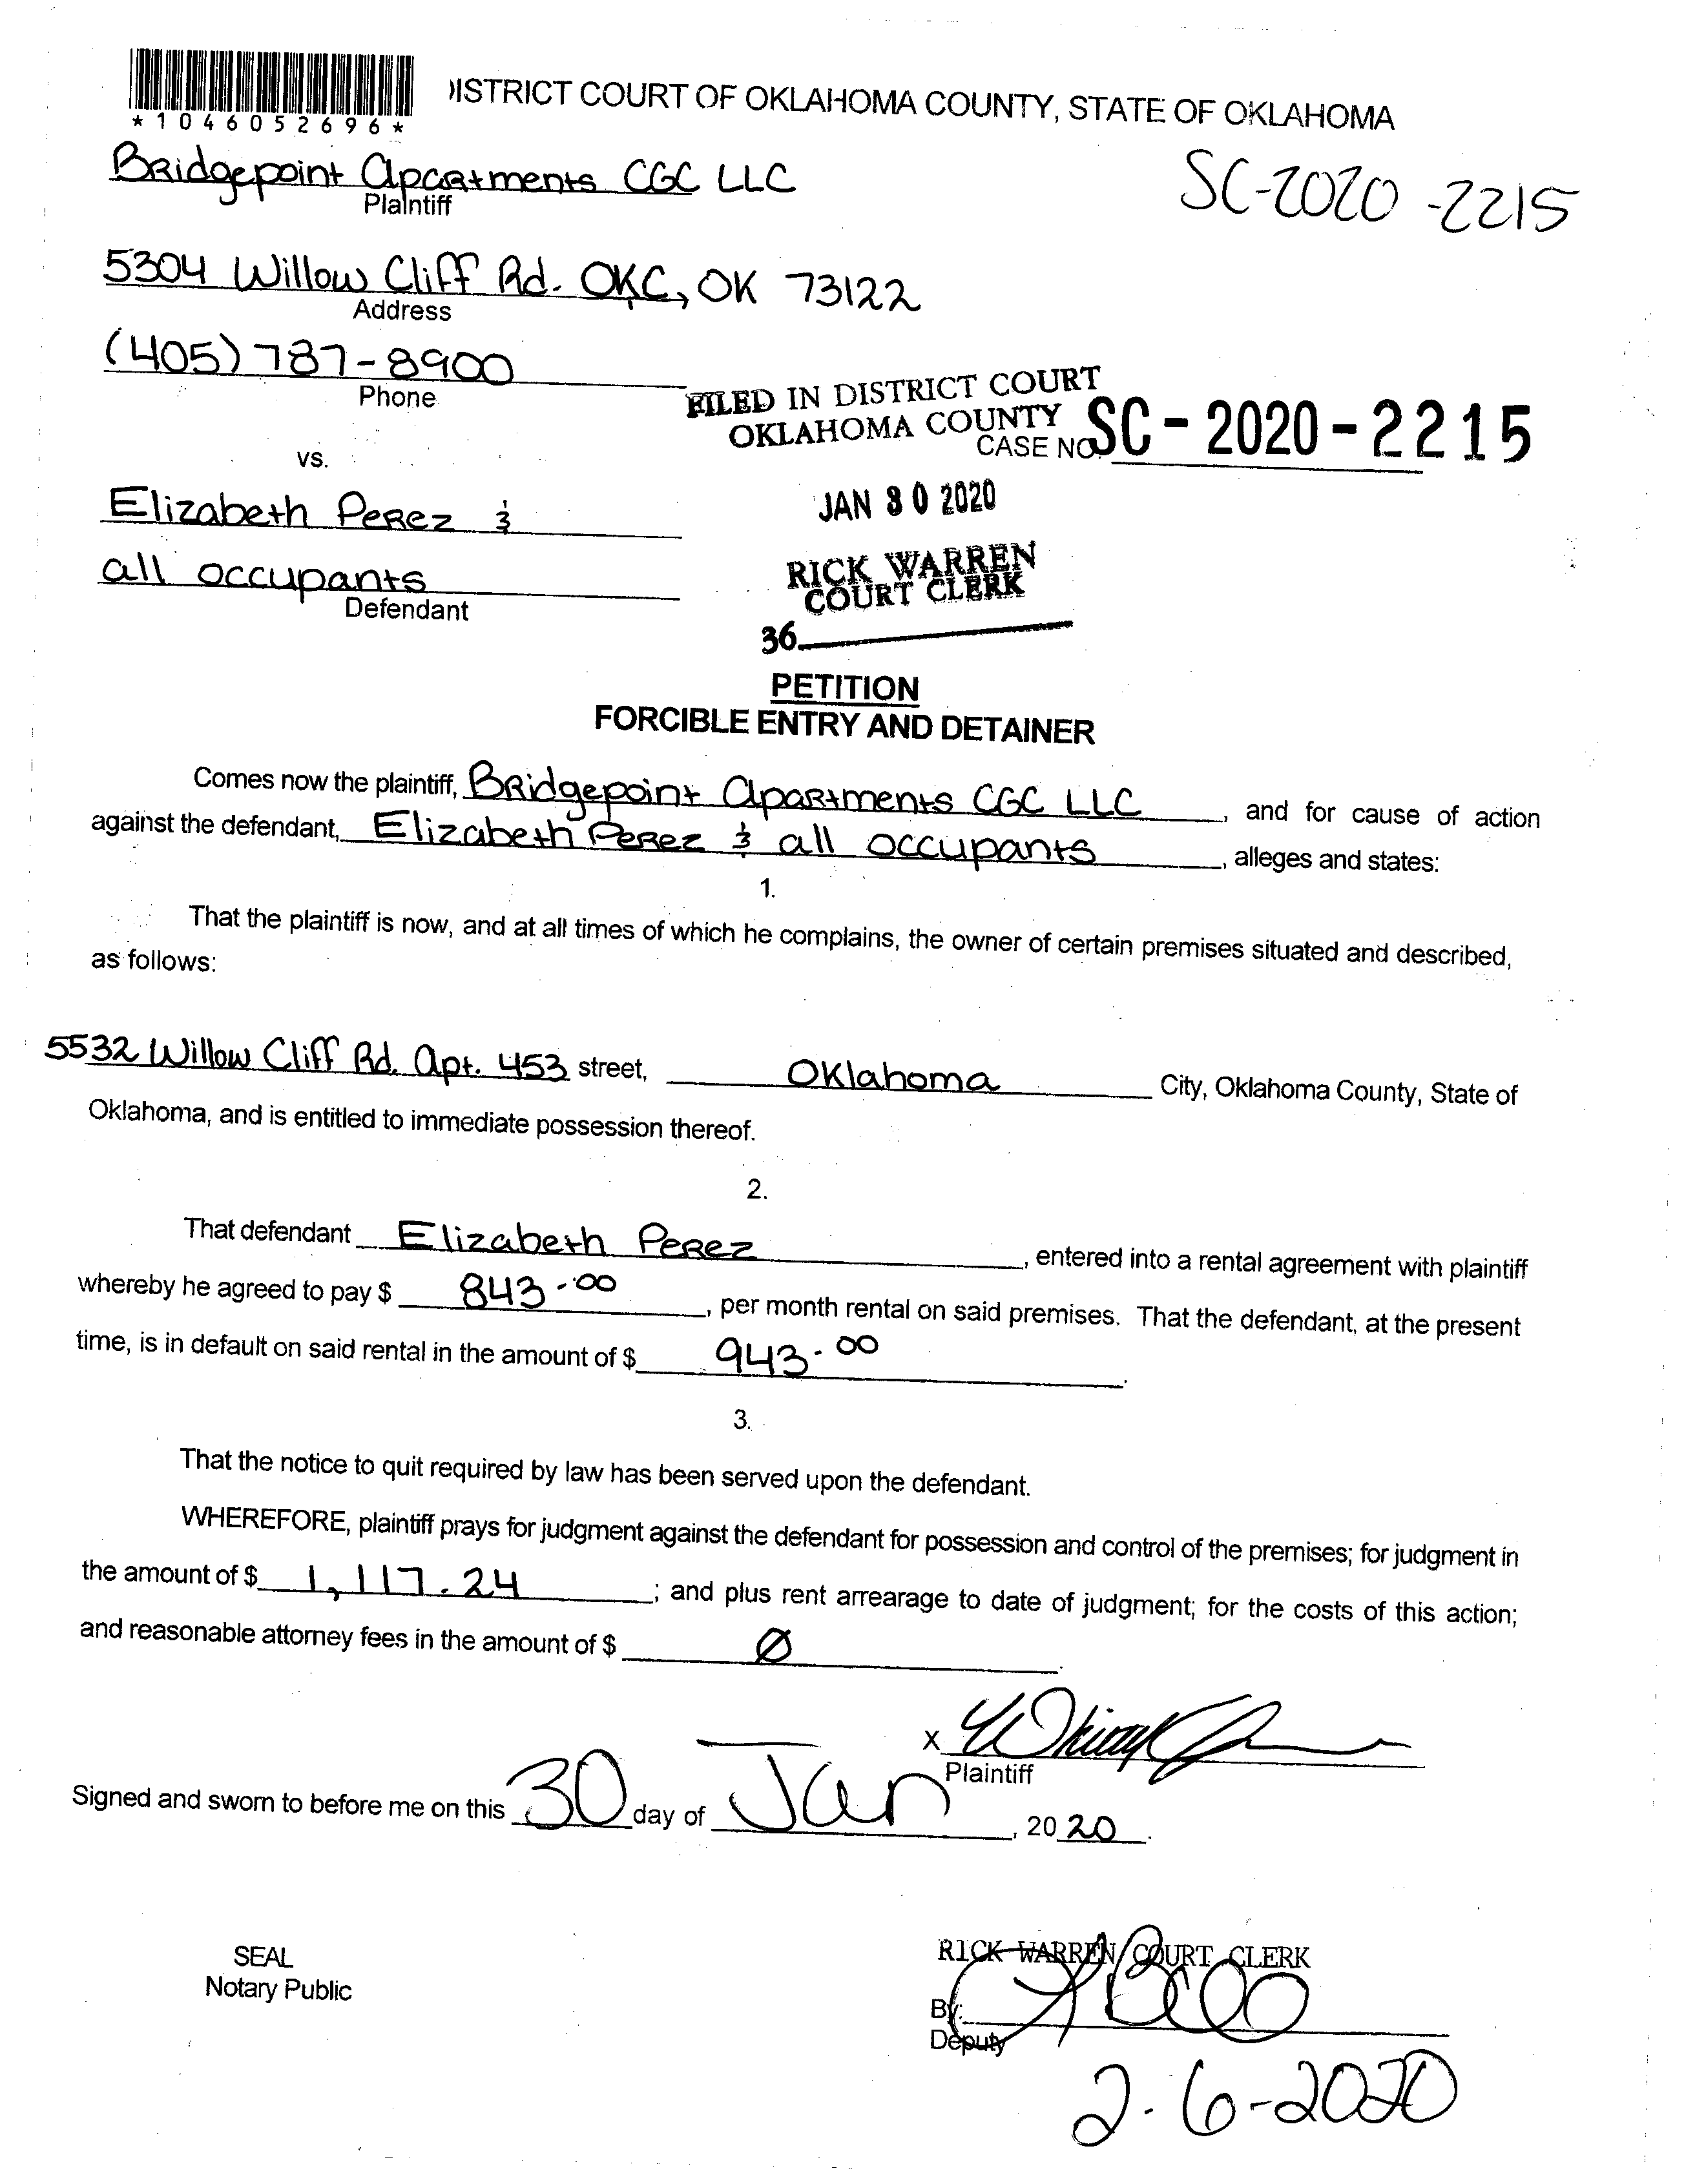 *1046052696*
ISTRICT COURT OF OKLAHOMA COUNTY, STATE OF OKLAHOMA
Bridgepoint Apartments CGC LLC
Plaintiff
SC-2020-2215
5304 Willow Cliff Rd. OKC, OK 73122
Address
(405) 787-8900
Phone
FILED IN DISTRICT COURT
OKLAHOMA COUNTY
CASE NO. SC-2020-2215
vs.
JAN 30 2020
Elizabeth Perez &
all occupants
Defendant
RICK WARREN
COURT CLERK
36
PETITION
FORCIBLE ENTRY AND DETAINER
Comes now the plaintiff, Bridgepoint Apartments CGC LLC, and for cause of action
against the defendant, Elizabeth Perez & all occupants, alleges and states:
1.
That the plaintiff is now, and at all times of which he complains, the owner of certain premises situated and described,
as follows:
5532 Willow Cliff Rd. Apt. 453 street, Oklahoma City, Oklahoma County, State of
Oklahoma, and is entitled to immediate possession thereof.
2.
That defendant Elizabeth Perez, entered into a rental agreement with plaintiff
whereby he agreed to pay $ 843.00, per month rental on said premises. That the defendant, at the present
time, is in default on said rental in the amount of $ 943.00.
3.
That the notice to quit required by law has been served upon the defendant.
WHEREFORE, plaintiff prays for judgment against the defendant for possession and control of the premises; for judgment in
the amount of $ 1,117.24; and plus rent arrearage to date of judgment; for the costs of this action;
and reasonable attorney fees in the amount of $ Ø.
X
Plaintiff
Signed and sworn to before me on this 30 day of Jan, 2020.
SEAL
Notary Public
RICK WARREN, COURT CLERK
By:
Deputy
2-6-2020